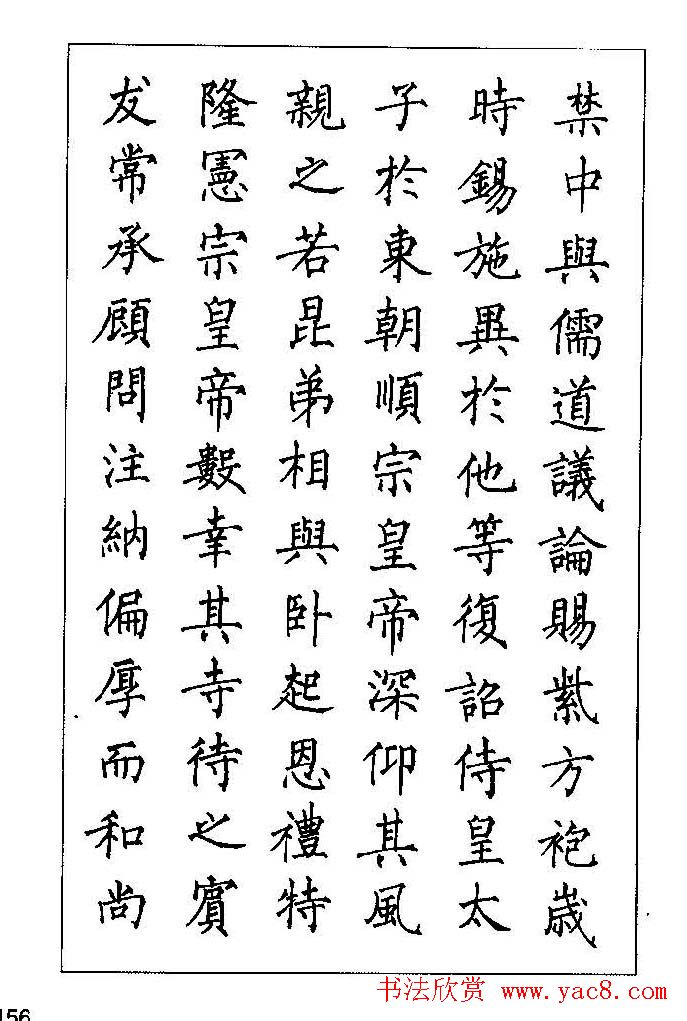 禁中與儒道議論賜紫方袍歲
時錫施異於他等復詔侍皇太
子於東朝順宗皇帝深仰其風
親之若昆弟相與卧起恩禮特
隆憲宗皇帝數幸其寺待之賓
友常承顧問注納偏厚而和尚
156
书法欣赏 www.yac8.com